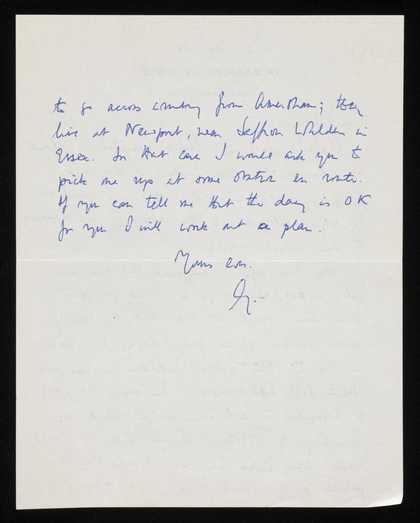 to go across country from Amersham; they
live at Newport, near Saffron Walden in
Essex. In that case I would ask you to
pick me up at some station en route.
If you can tell me that the day is OK
for you I will work out a plan.
Yours